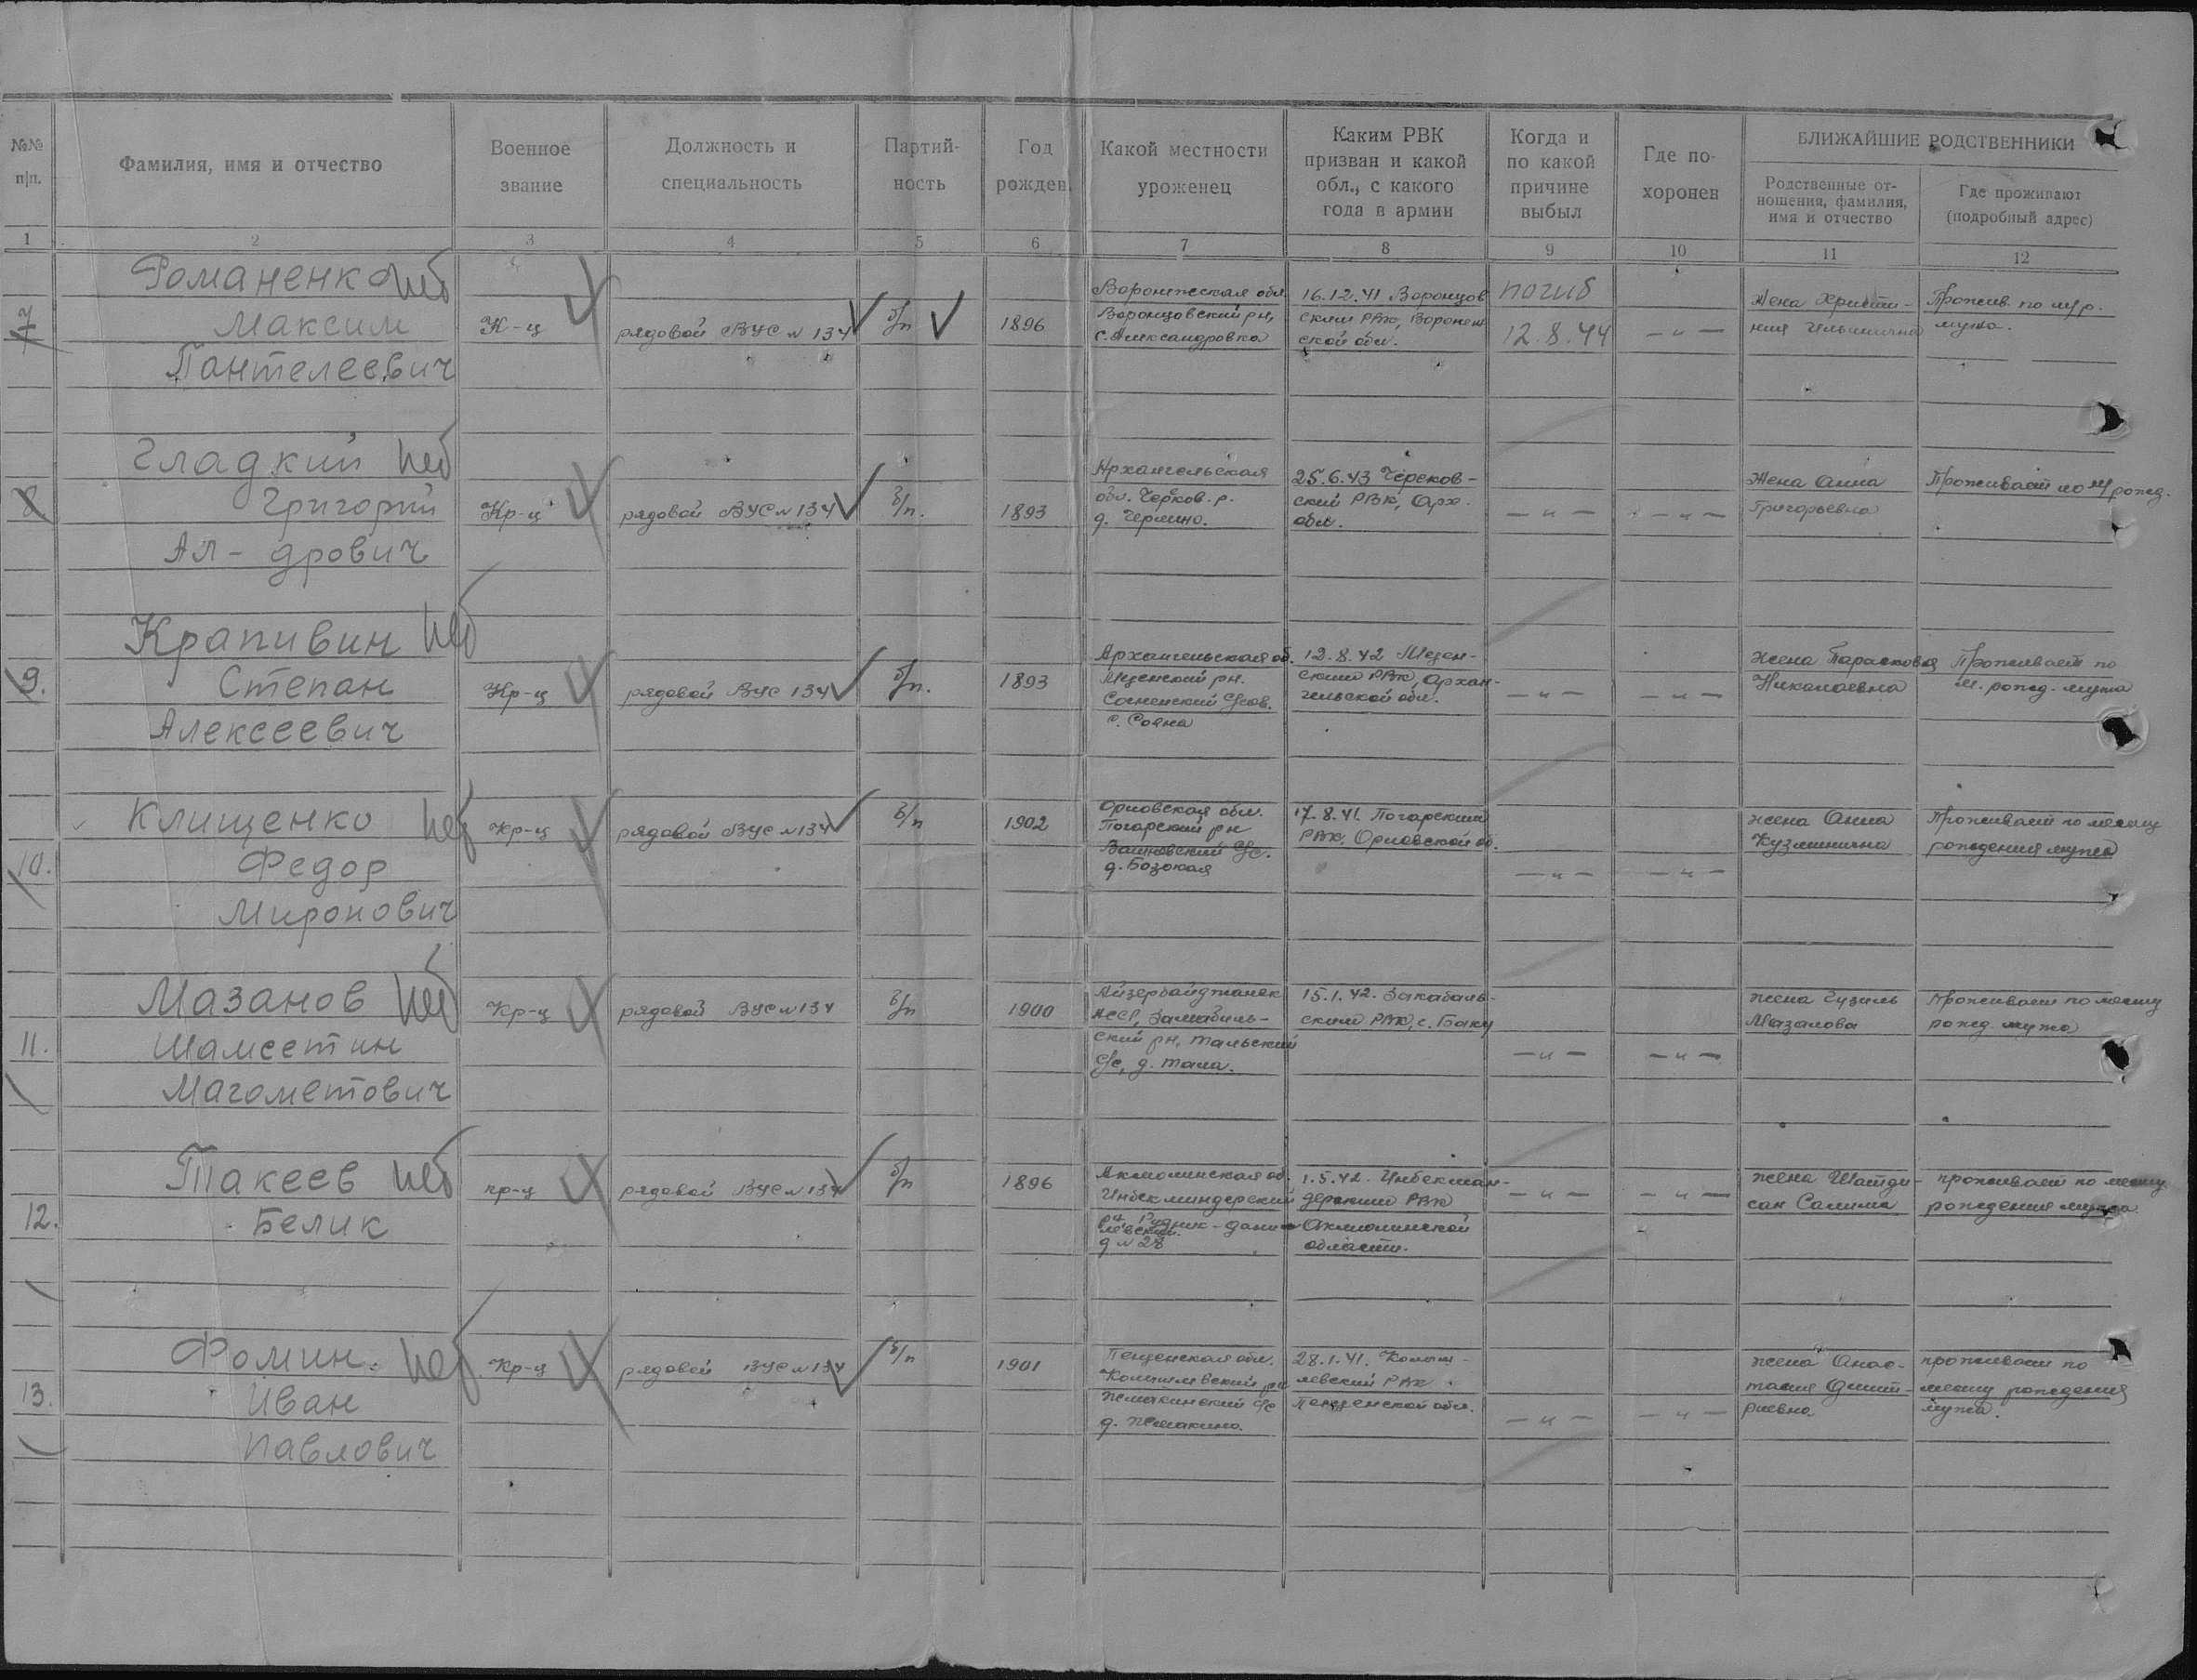 №№ п|п.
Фамилия, имя и отчество
Военное звание
Должность и специальность
Партий-ность
Год рожден.
Какой местности уроженец
Каким РВК призван и какой обл., с какого года в армии
Когда и по какой причине выбыл
Где по-хоронен
БЛИЖАЙШИЕ РОДСТВЕННИКИ
Родственные от-ношения, фамилия, имя и отчество
Где проживают (подробный адрес)
1 2 3 4 5 6 7 8 9 10 11 12
7
Романенко
Максим
Пантелеевич
К-ц
рядовой ВУС № 134
б/п
1896
Воронежская обл.
Воронцовский рн,
с. Александровка
16.12.41 Воронцов
ским РВК, Воронеж
ской обл.
погиб
12.8.44
— " —
Жена Христи-
ния Ильинична
Прожив. по м/р.
мужа.
8.
Гладкий
Григорий
Ал-дрович
Кр-ц
рядовой ВУС № 134
б/п.
1893
Архангельская
обл. Черков. р.
д. Чермино.
25.6.43 Череков-
ский РВК, Арх.
обл.
— " —
— " —
Жена Анна
Григорьевна
Проживает по м/рожд.
9.
Крапивин
Степан
Алексеевич
Кр-ц
рядовой ВУС 134
б/п.
1893
Архангельская об.
Мезенский рн.
с. Сояна
12.8.42 Мезен-
ским РВК, Архан-
гельской обл.
— " —
— " —
жена Парасковья
Николаевна
Проживает по
м. рожд. мужа
10.
Клищенко
Федор
Миронович
Кр-ц
рядовой ВУС № 134
б/п
1902
Орловская обл.
Погарский рн
с/с.
17.8.41. Погарским
РВК, Орловской об.
— " —
— " —
жена Анна
Кузминична
Проживает по месту
рождения мужа
11.
Мазанов
Шамсетин
Магометович
Кр-ц
рядовой ВУС № 134
б/п
1900
Айзербайджанск
ский рн, Тальский
с/с, д. Тала.
15.1.42. Закаталь-
ским РВК, г. Баку
— " —
— " —
жена Гузиль
Проживает по месту
рожд. мужа
12.
Такеев
Белик
кр-ц
рядовой ВУС № 134
б/п
1896
Акмолинская об.
Инбекшилдерский
д № 28
1.5.42. Инбекшил-
дерским РВК
Акмолинской
области.
— " —
— " —
сан Салима
проживает по месту
рождения мужа
13.
Фомин.
Иван
Павлович
Кр-ц
рядовой ВУС № 134
б/п
1901
Пензенская обл.
Колышлевский рн
д. Жемакино.
28.1.41. Колыш-
левский РВК
Пензенской обл.
— " —
— " —
жена Анас-
тасия Дмит-
риевна.
проживает по
месту рождения
мужа.